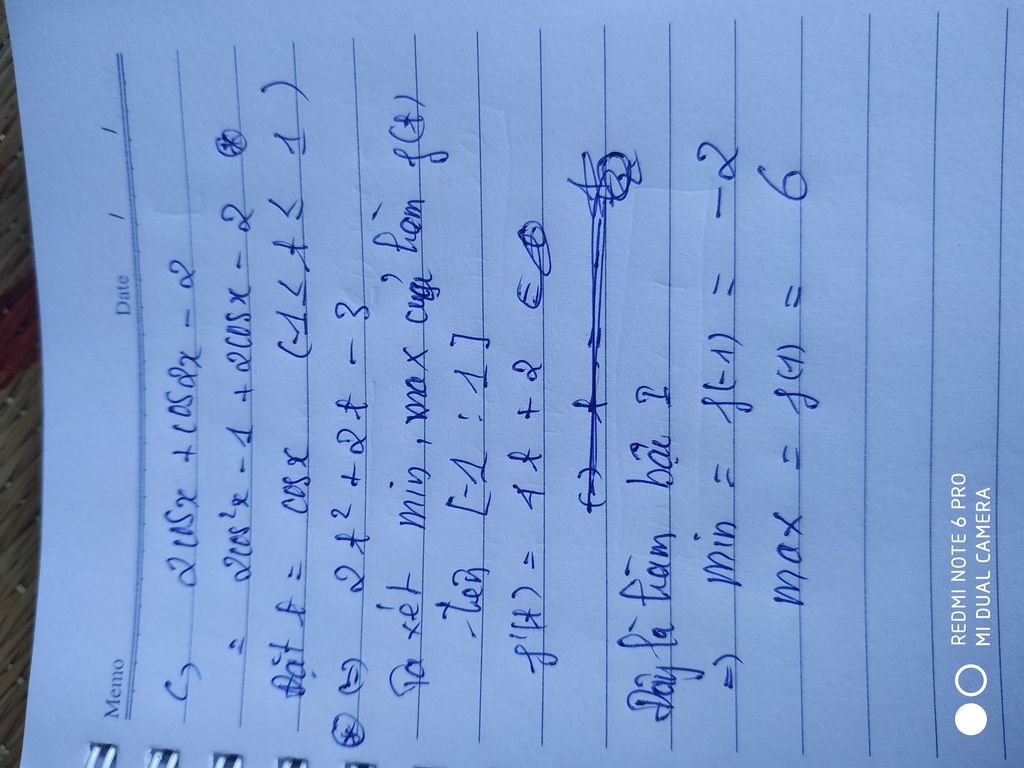 Memo Date / /
c, 2cosx + cos2x - 2
= 2cos²x - 1 + 2cosx - 2 ⊛
Đặt t = cosx (-1 ≤ t ≤ 1)
⊛ (=) 2t² + 2t - 3
Ta xét min, max của hàm f(t)
trên [-1 : 1]
f'(t) = 4t + 2
Đây là hàm bậc I
=) min = f(-1) = -2
max = f(1) = 6
REDMI NOTE 6 PRO
MI DUAL CAMERA